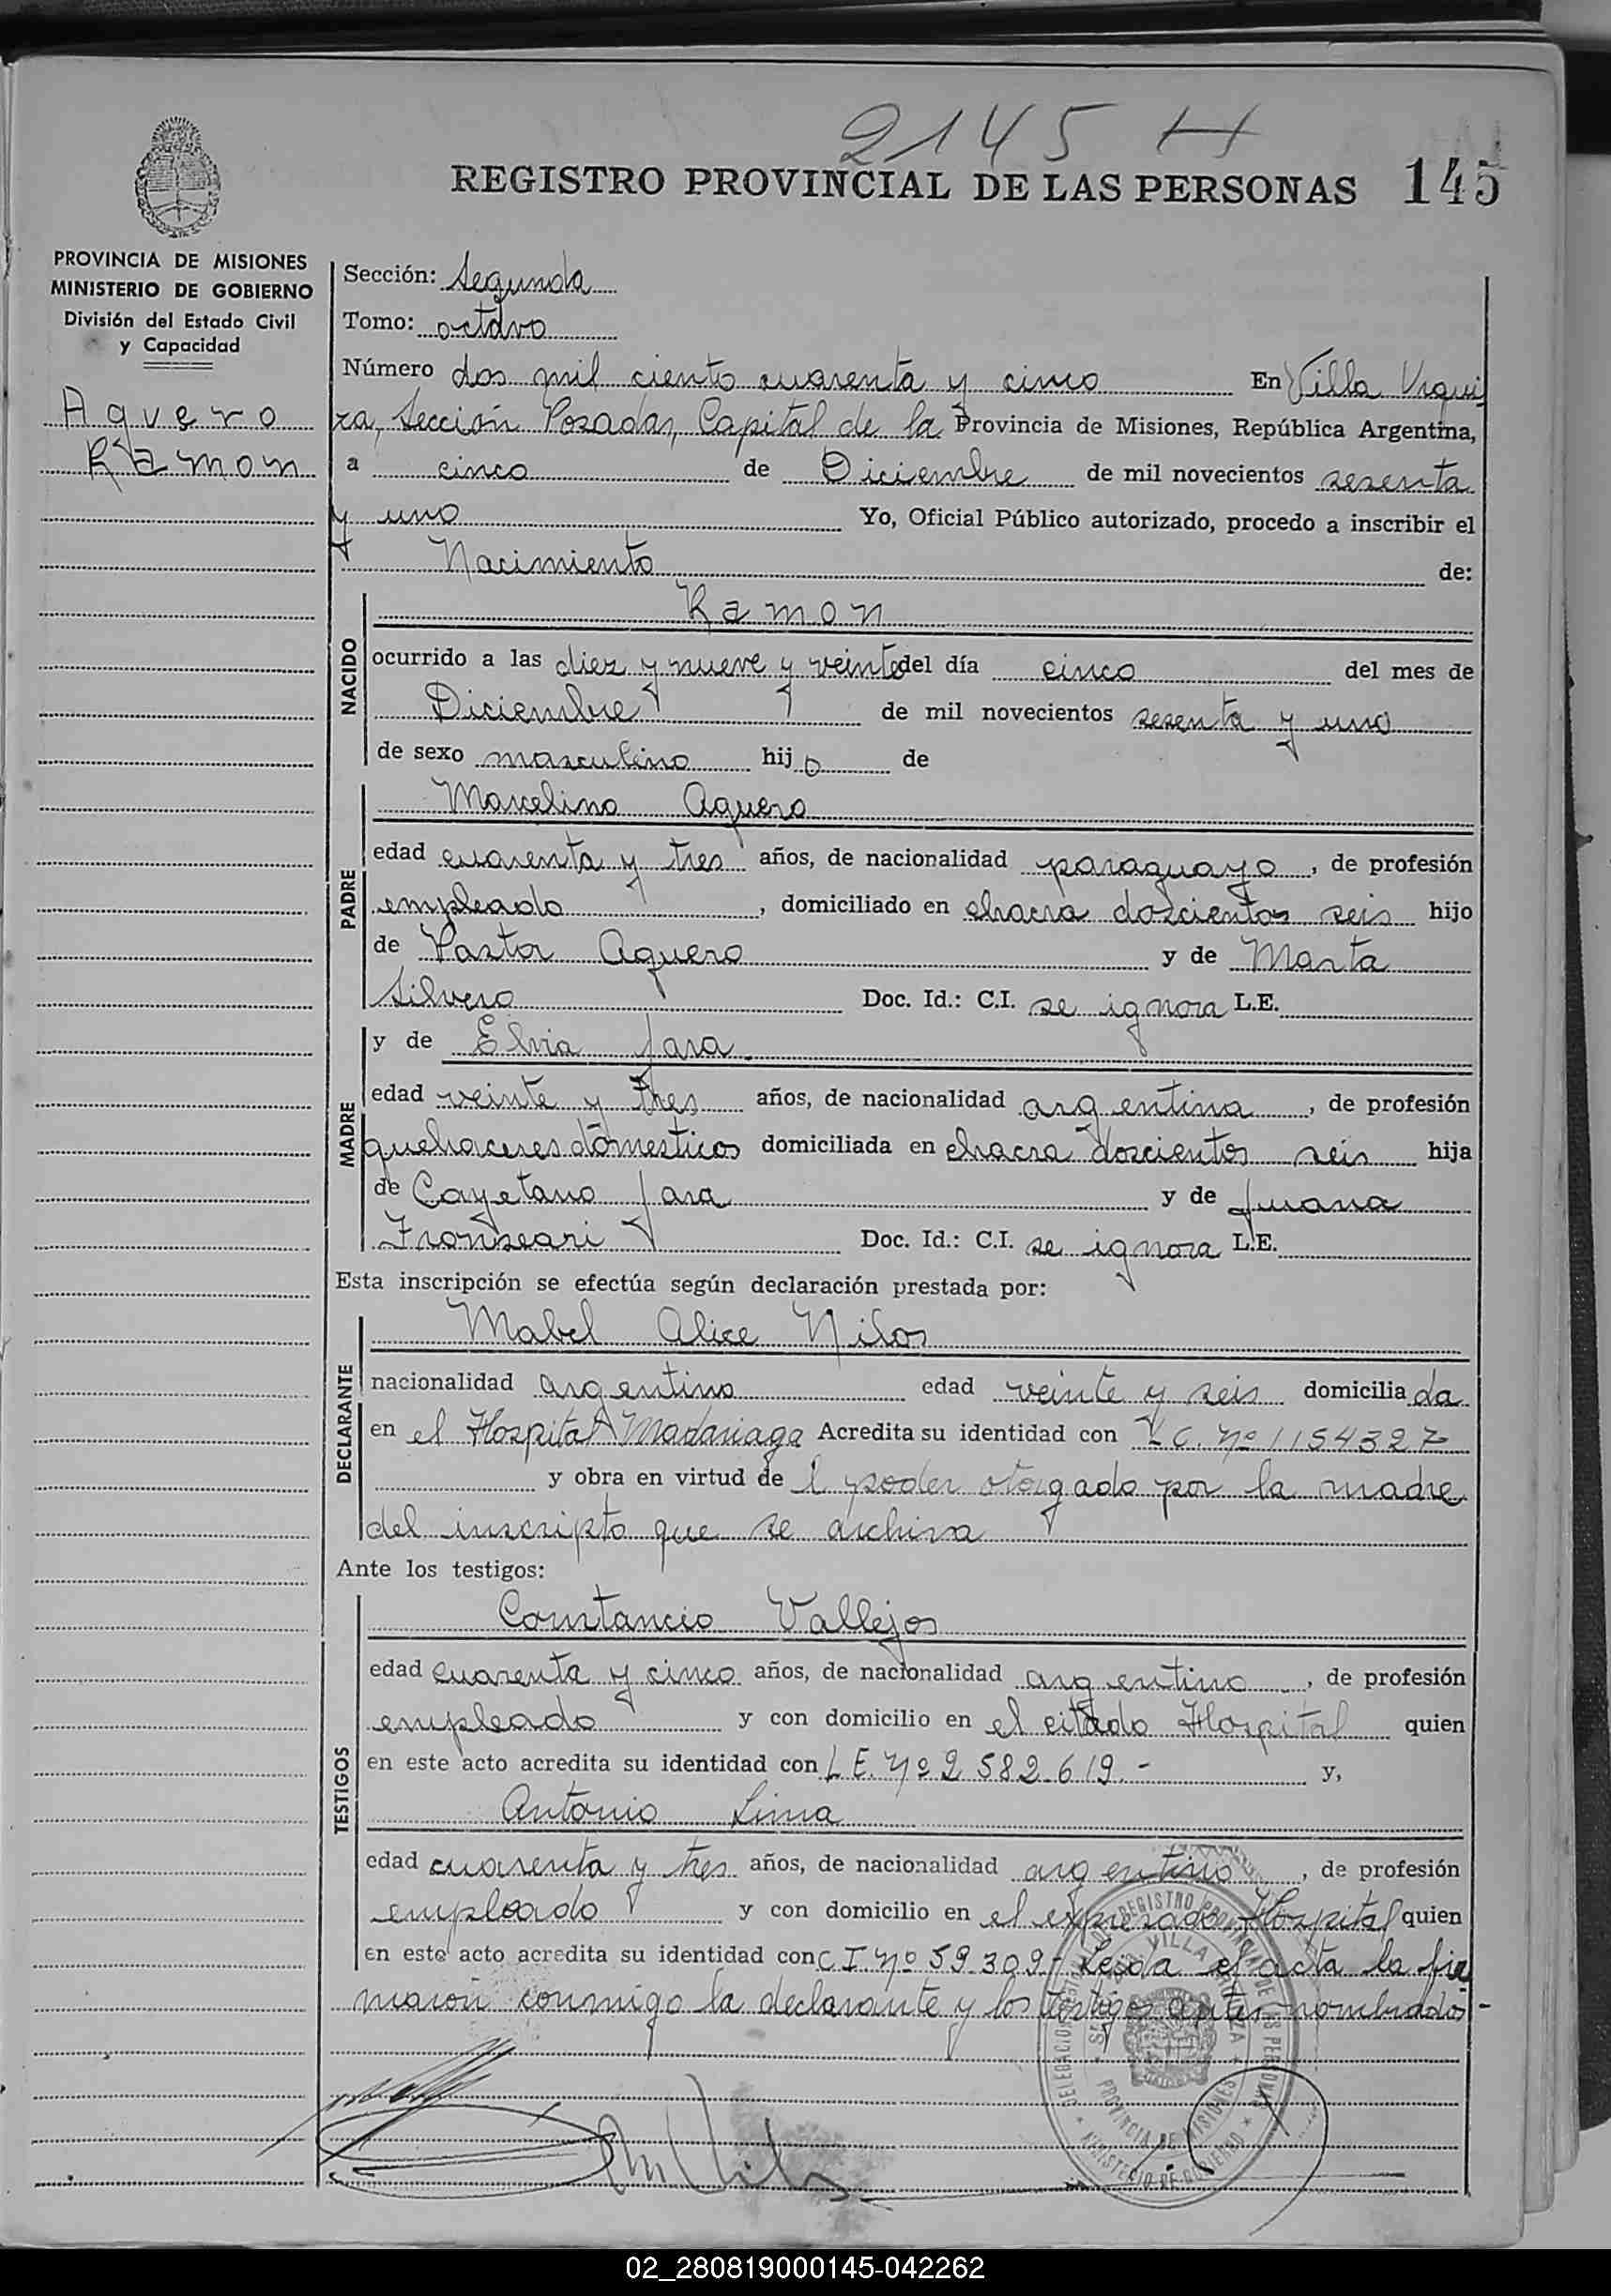 2145 H
REGISTRO PROVINCIAL DE LAS PERSONAS 145
PROVINCIA DE MISIONES
MINISTERIO DE GOBIERNO
División del Estado Civil
y Capacidad
Aguero
Ramon
Sección: Segunda
Tomo: octavo
Número dos mil ciento cuarenta y cinco En Villa Urqui
za, Sección Posadas, Capital de la Provincia de Misiones, República Argentina,
a cinco de Diciembre de mil novecientos sesenta
y uno Yo, Oficial Público autorizado, procedo a inscribir el
Nacimiento de:
NACIDO
Ramon
ocurrido a las diez y nueve y veinte del día cinco del mes de
Diciembre de mil novecientos sesenta y uno
de sexo masculino hijo de
PADRE
Marcelino Aguero
edad cuarenta y tres años, de nacionalidad paraguayo, de profesión
empleado, domiciliado en chacra doscientos seis hijo
de Pastor Aguero y de Marta
Silvero Doc. Id.: C.I. se ignora L.E.
MADRE
y de Elvia Jara
edad veinte y tres años, de nacionalidad argentina, de profesión
quehaceres domesticos domiciliada en chacra doscientos seis hija
de Cayetano Jara y de Juana
Doc. Id.: C.I. se ignora L.E.
Esta inscripción se efectúa según declaración prestada por:
DECLARANTE
Mabel Alice
nacionalidad argentina edad veinte y seis domiciliada
en el Hospital Madariaga Acredita su identidad con L C. Nº 1154327
y obra en virtud del poder otorgado por la madre
del inscripto que se archiva
Ante los testigos:
TESTIGOS
Constancio Vallejos
edad cuarenta y cinco años, de nacionalidad argentino, de profesión
empleado y con domicilio en el citado Hospital quien
en este acto acredita su identidad con L E. Nº 2 582.619.- y,
Antonio Lima
edad cuarenta y tres años, de nacionalidad argentino, de profesión
empleado y con domicilio en el expresado Hospital quien
en este acto acredita su identidad con C I Nº 59.309- Leida el acta la fir
maron conmigo la declarante y los testigos antes nombrados-
02_280819000145-042262